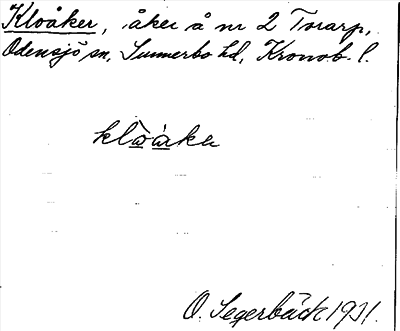 Kloåker, åker å nr 2 Torarp,
Odensjö sn, Sunnerbo hd, Kronob. l.
klòàka
O. Segerbäck 1931.